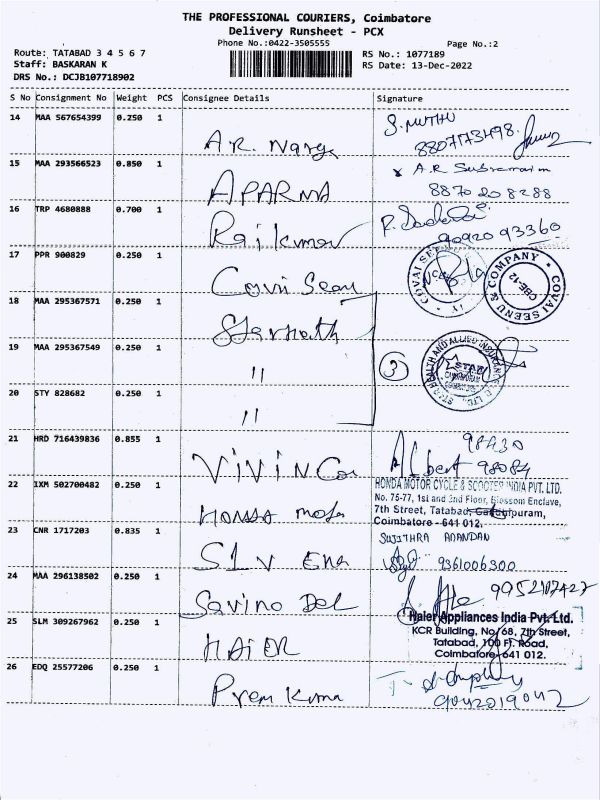 THE PROFESSIONAL COURIERS, Coimbatore
Delivery Runsheet - PCX
Phone No.:0422-3505555
Page No.:2
Route: TATABAD 3 4 5 6 7
RS No.: 1077189
Staff: BASKARAN K
RS Date: 13-Dec-2022
DRS No.: DCJB107718902
S No Consignment No Weight PCS Consignee Details Signature
14 MAA 567654399 0.250 1 A.R. S.MUTHU
15 MAA 293566523 0.850 1 APARNA A.R Subramaim
8870208288
16 TRP 4680888 0.700 1 Rajkumar
9092093360
17 PPR 900829 0.250 1 Covai Seenu
COVAI SEENU & COMPANY
CBE-12
18 MAA 295367571 0.250 1 Starhealth
19 MAA 295367549 0.250 1 " 3
STAR HEALTH AND ALLIED INSURANCE CO. LTD.
20 STY 828682 0.250 1 "
21 HRD 716439836 0.855 1 98430
Albert 98084
22 IXM 502700482 0.250 1 HONDA Moto
HONDA MOTOR CYCLE & SCOOTER INDIA PVT. LTD.
No. 75-77, 1st and 2nd Floor, Blossom Enclave,
7th Street, Tatabad, Gandhipuram,
Coimbatore - 641 012.
23 CNR 1717203 0.835 1 SUJITHRA ANANDAN
9361006300
24 MAA 296138502 0.250 1 Savino Del
25 SLM 309267962 0.250 1 HAIER
Haier Appliances India Pvt. Ltd.
KCR Building, No. 68, 7th Street,
Tatabad, 100 Ft. Road,
Coimbatore-641 012.
26 EDQ 25577206 0.250 1 Prem Kuma
9042019042